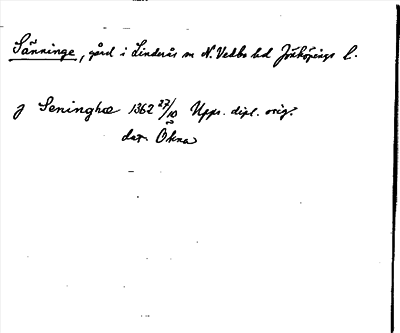 Sänninge, gård i Linderås sn N. Vedbo hd Jönköpings l.
J Seninghæ 1362 27/10 Upps. dipl. orig.
dat. Okna